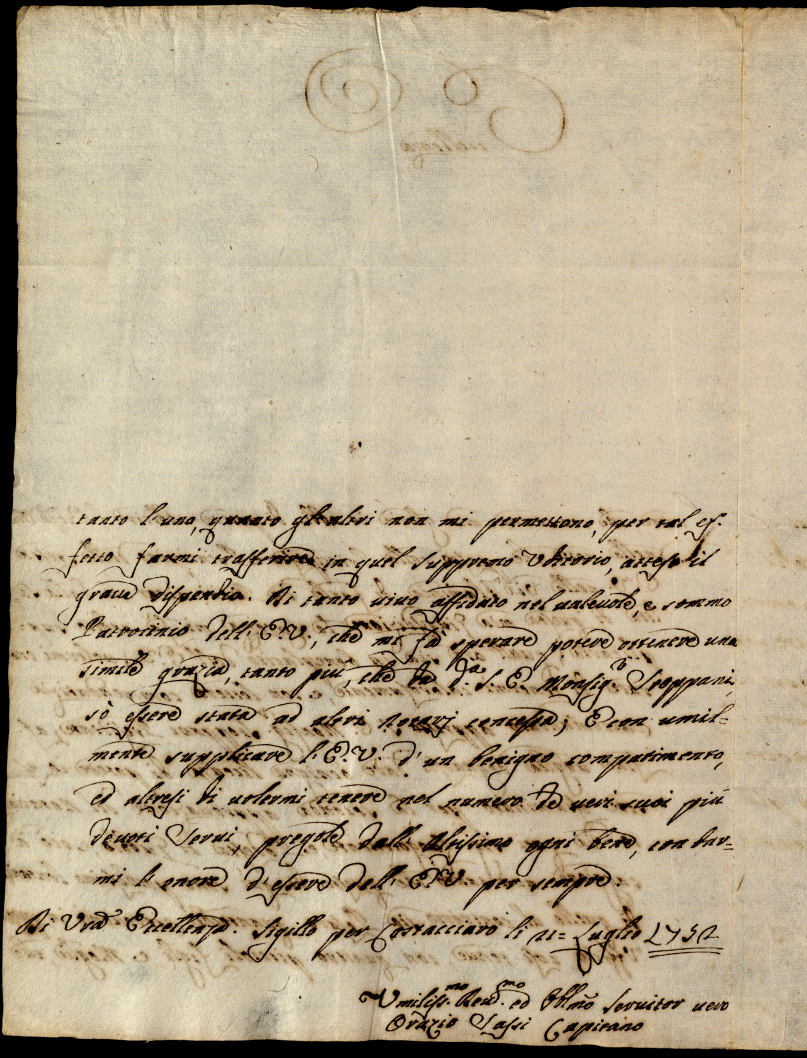 tanto l'uno, quanto gl'altri non mi permettono, per tal ef-
fetto farmi trasferire in quel suppremo Uditorio, atteso il
grave dispendio. Di tanto vivo affidato nel valevole, e sommo
Patrocinio dell'E.V., che mi fà sperare potere ottenere una
simile grazia, tanto più, che da d.a S. E. Monsig.r Stoppani,
sò essere stata ad altri Notarj concessa; E con umil-
mente supplicare l'E.V. d'un benigno compatimento,
ed altresì di volermi tenere nel numero de veri suoi più
devoti Servi, pregole dall'Altissimo ogni bene, con dar-
mi l'onore d'essere dell'E.V. per sempre.
Di Vra Eccellenza. Sigillo per Costacciaro li 11= Luglio 1752
Umiliss.mo Dev.mo ed Obl.mo Servitor vero
Orazio Sassi Capitano